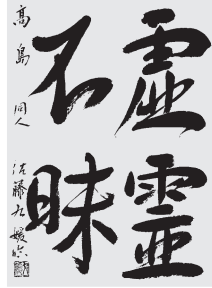 虚靈
不昧
高島 同人
佐藤九